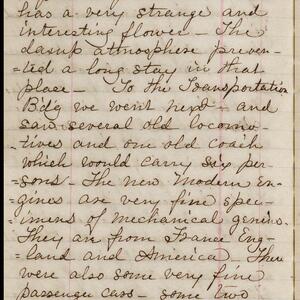 has a very strange and
interesting flower - The
damp attmosphere preven-
-ted a long stay in that
place - To the Transportation
Bdg we went next - and
saw several old locomo-
-tives and one old coach
which would carry six per-
-sons - The new Modern En-
-gines are very fine spec-
-imens of mechanical genius.
They are from France Eng-
-land and America. There
were also some very fine
passenger cars - some two